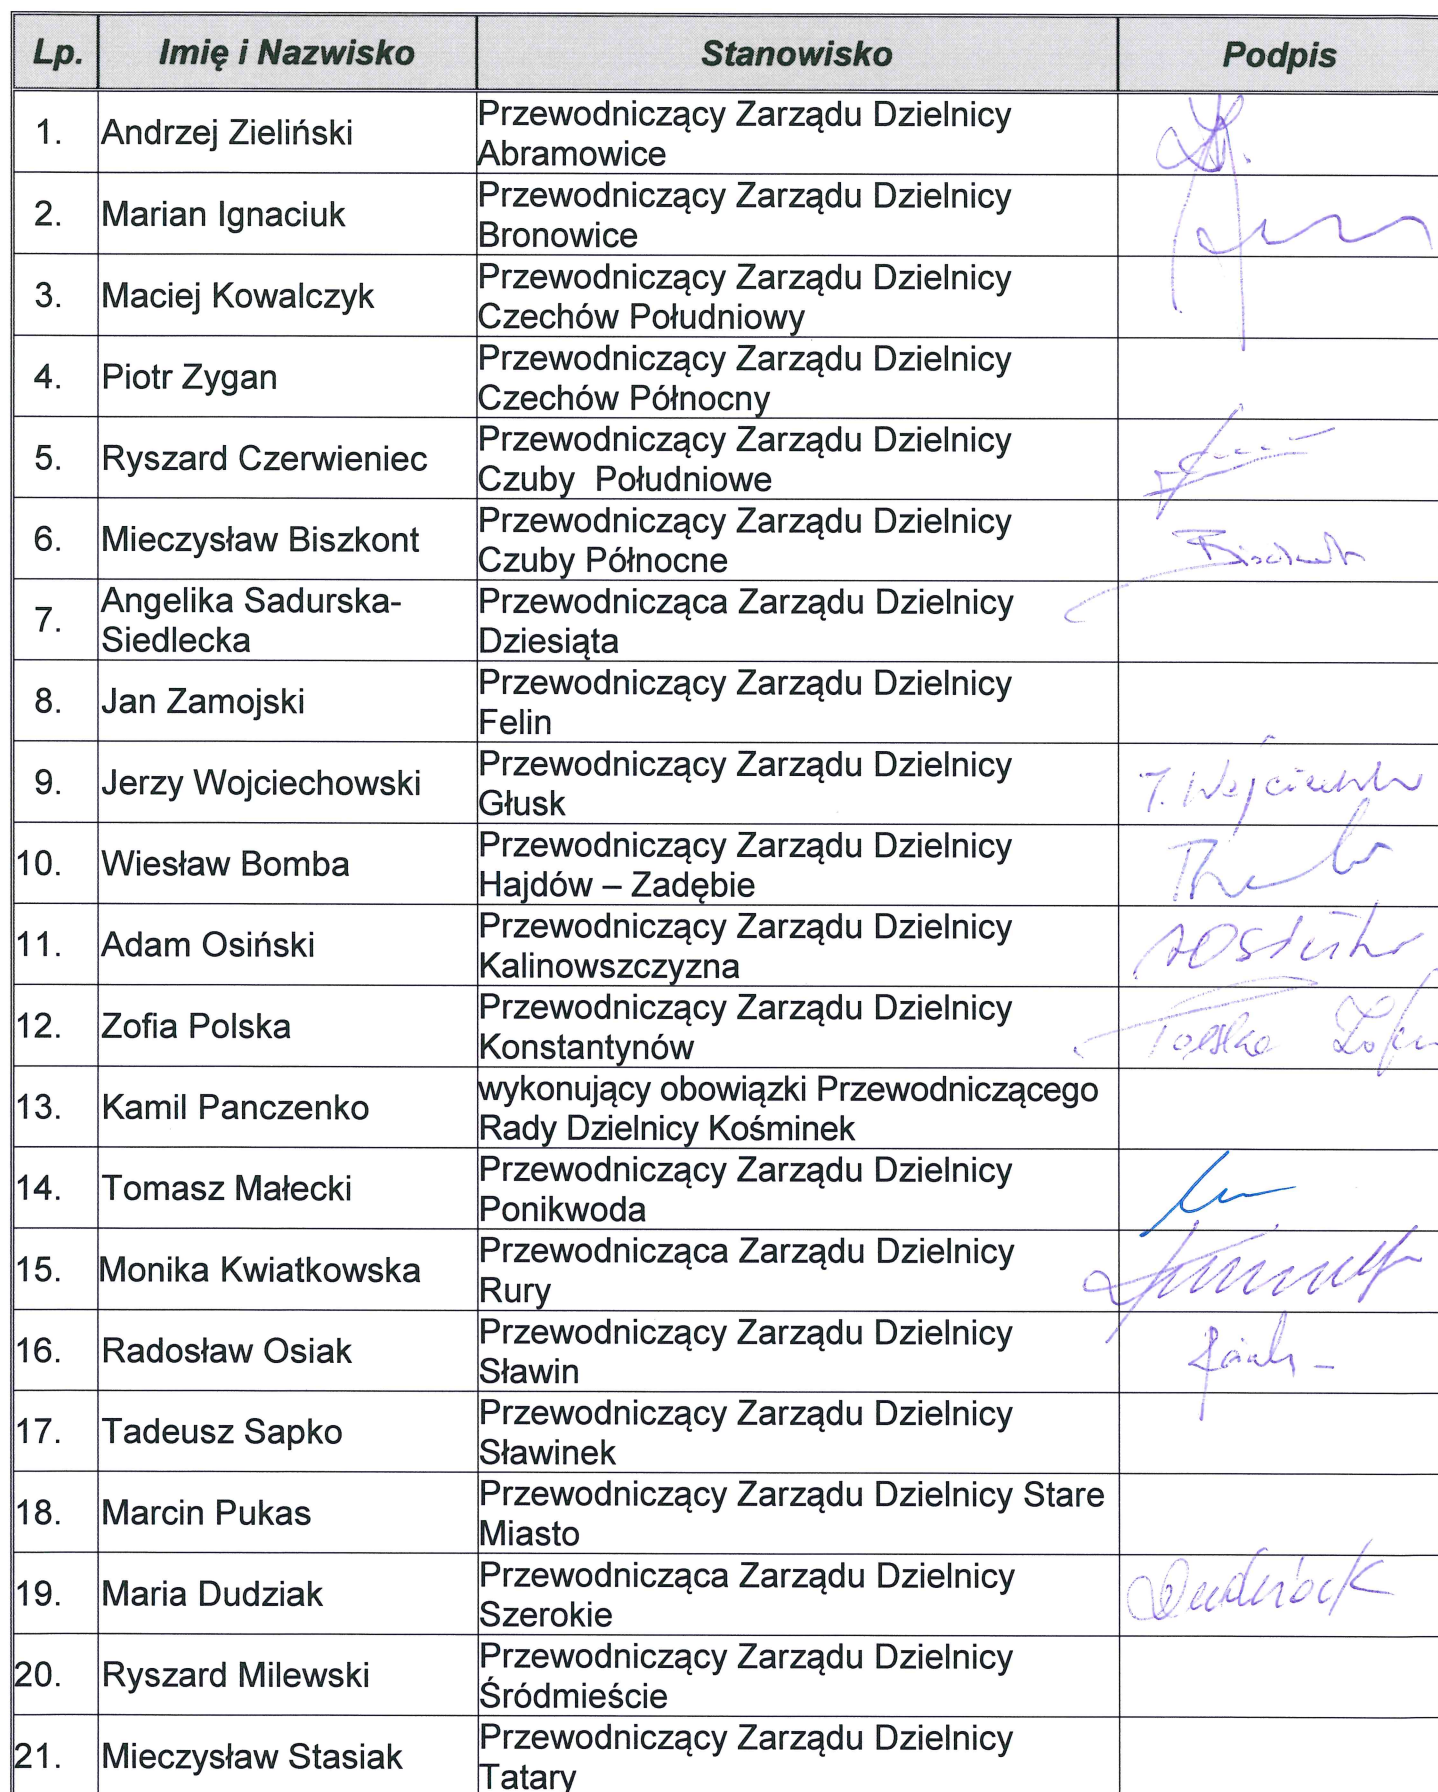 Lp. Imię i Nazwisko Stanowisko Podpis
1. Andrzej Zieliński Przewodniczący Zarządu Dzielnicy
Abramowice
2. Marian Ignaciuk Przewodniczący Zarządu Dzielnicy
Bronowice
3. Maciej Kowalczyk Przewodniczący Zarządu Dzielnicy
Czechów Południowy
4. Piotr Zygan Przewodniczący Zarządu Dzielnicy
Czechów Północny
5. Ryszard Czerwieniec Przewodniczący Zarządu Dzielnicy
Czuby Południowe
6. Mieczysław Biszkont Przewodniczący Zarządu Dzielnicy
Czuby Północne
7. Angelika Sadurska- Przewodnicząca Zarządu Dzielnicy
Siedlecka Dziesiąta
8. Jan Zamojski Przewodniczący Zarządu Dzielnicy
Felin
9. Jerzy Wojciechowski Przewodniczący Zarządu Dzielnicy
Głusk
10. Wiesław Bomba Przewodniczący Zarządu Dzielnicy
Hajdów – Zadębie
11. Adam Osiński Przewodniczący Zarządu Dzielnicy
Kalinowszczyzna
12. Zofia Polska Przewodniczący Zarządu Dzielnicy Polska
Konstantynów
13. Kamil Panczenko wykonujący obowiązki Przewodniczącego
Rady Dzielnicy Kośminek
14. Tomasz Małecki Przewodniczący Zarządu Dzielnicy
Ponikwoda
15. Monika Kwiatkowska Przewodnicząca Zarządu Dzielnicy
Rury
16. Radosław Osiak Przewodniczący Zarządu Dzielnicy
Sławin
17. Tadeusz Sapko Przewodniczący Zarządu Dzielnicy
Sławinek
18. Marcin Pukas Przewodniczący Zarządu Dzielnicy Stare
Miasto
19. Maria Dudziak Przewodnicząca Zarządu Dzielnicy
Szerokie
20. Ryszard Milewski Przewodniczący Zarządu Dzielnicy
Śródmieście
21. Mieczysław Stasiak Przewodniczący Zarządu Dzielnicy
Tatary